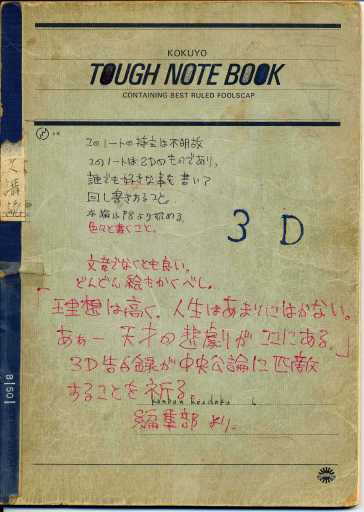 KOKUYO
TOUGH NOTE BOOK
CONTAINING BEST RULED FOOLSCAP
このノートの持主は不明故
このノートは3Dのものであり、
誰でも好きな事を書いて
回し書きすること
本論はP8より始める。
色々と書くこと。
3D
文章でなくとも良い。
どんどん絵もかくべし。
「理想は高く、人生はあまりにはかない。
あぁー 天才の悲劇がここにある。」
3D告白録が中央公論に匹敵
することを祈る
編集部 より。
8150